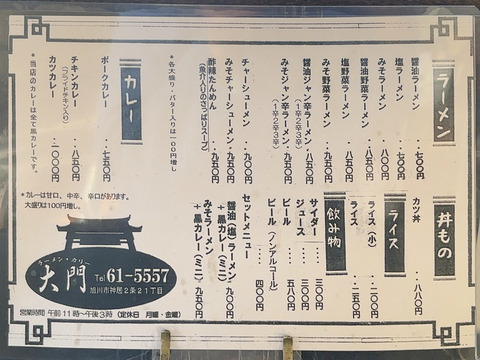 ラーメン
醤油ラーメン・・七〇〇円
塩ラーメン・・・七〇〇円
みそラーメン・・八〇〇円
醤油野菜ラーメン・八五〇円
塩野菜ラーメン・・八五〇円
みそ野菜ラーメン・九五〇円
醤油ジャン辛ラーメン・八五〇円
(1辛2辛3辛)
みそジャン辛ラーメン・九五〇円
(1辛2辛3辛)
チャーシューメン・・九〇〇円
みそチャーシューメン・九五〇円
酢辣たんめん・・・九五〇円
(魚介入りのさっぱりスープ)
*各大盛り・バター入りは100円増し
カレー
ポークカレー・・七五〇円
チキンカレー・・八五〇円
(フライドチキン入り)
カツカレー・・一〇〇〇円
*当店のカレーは全て黒カレーです。
*カレーは甘口、中辛、辛口があります。
大盛りは100円増し。
丼もの
カツ丼・・・八八〇円
ライス
ライス(小)・・二〇〇円
ライス・・・二五〇円
飲み物
サイダー・・三〇〇円
ジュース・・三〇〇円
ビール・・・五八〇円
ビール(ノンアルコール)・・四〇〇円
セットメニュー
醤油(塩)ラーメン
+黒カレー(ミニ)九〇〇円
みそラーメン
+黒カレー(ミニ)九五〇円
ラーメン・カリー
大門
Tel 61-5557
旭川市神居2条21丁目
営業時間 午前11時〜午後3時(定休日 月曜・金曜)